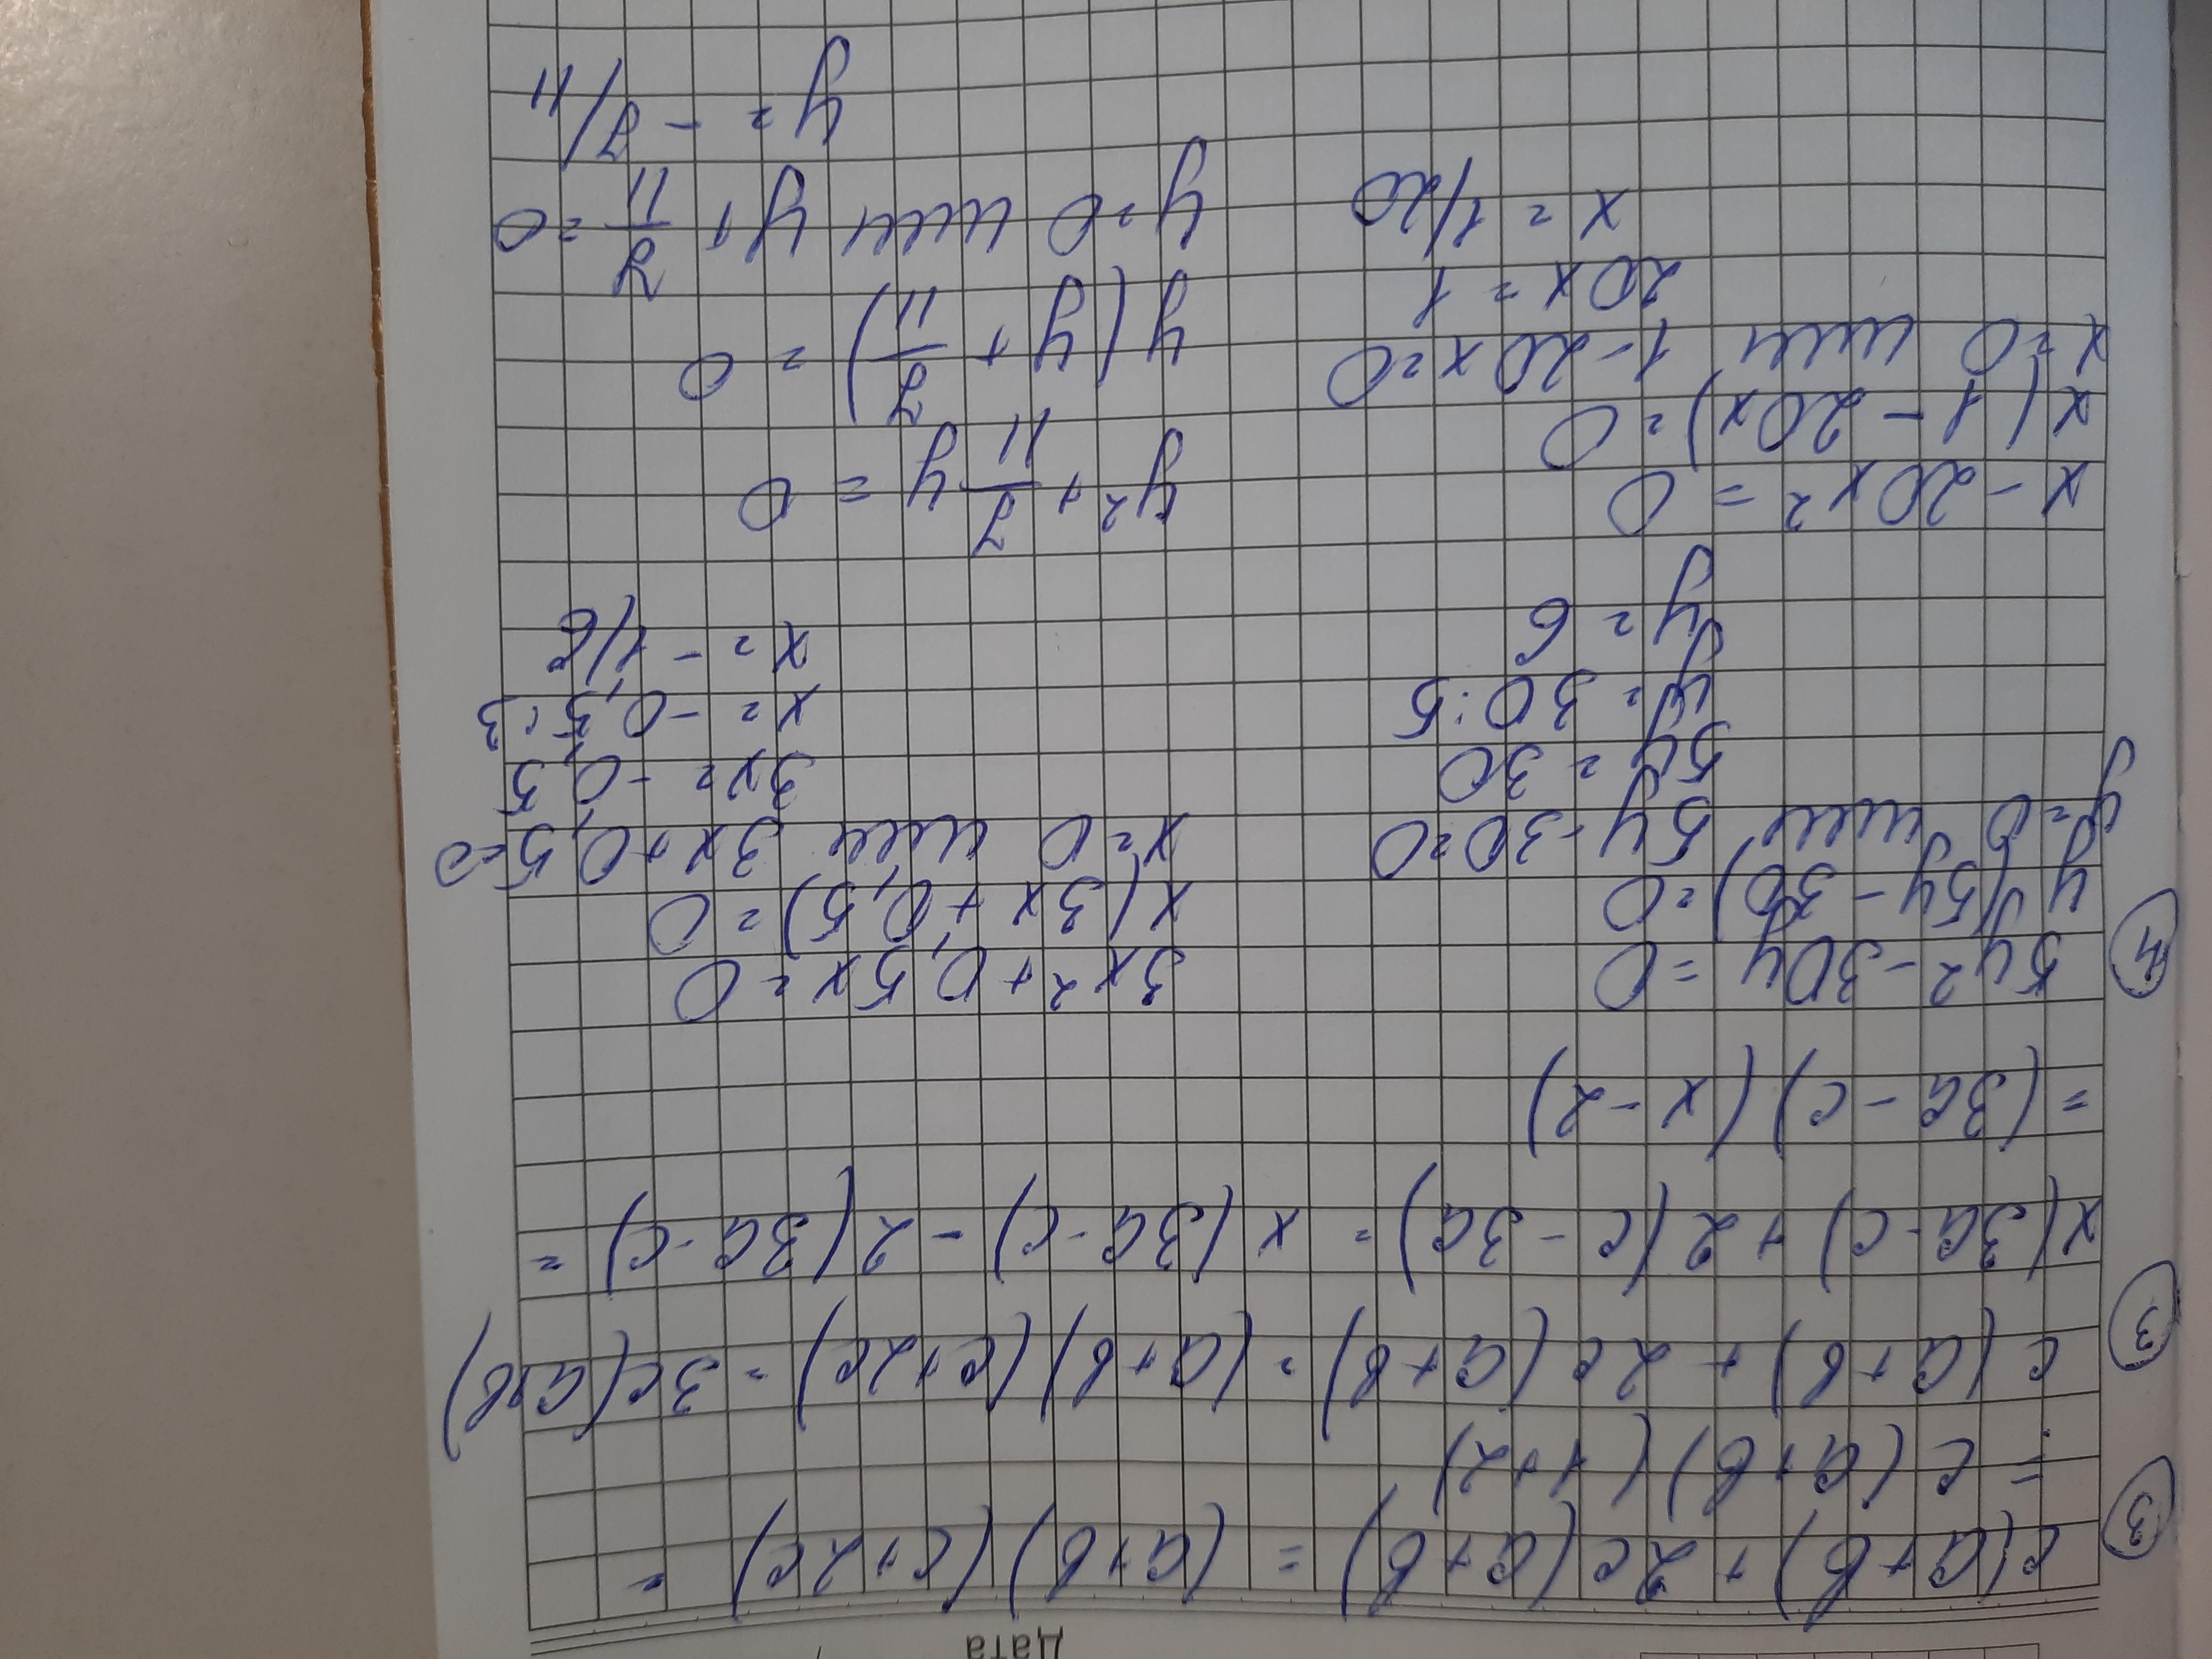 Дата
③ c(a+b)+2c(a+b) = (a+b)(c+2c) =
= c(a+b)(1+2)
③ c(a+b)+2c(a+b) = (a+b)(c+2c) = 3c(a+b)
x(3a-c)+2(c-3a) = x(3a-c)-2(3a-c) =
= (3a-c)(x-2)
④ 5y²-30y=0
y(5y-30)=0
y=0 или 5y-30=0
5y=30
y=30:5
y=6
3x²+0,5x=0
x(3x+0,5)=0
x=0 или 3x+0,5=0
3x=-0,5
x=-0,5:3
x=-1/6
x-20x²=0
x(1-20x)=0
x=0 или 1-20x=0
20x=1
x=1/20
y²+7/11y=0
y(y+7/11)=0
y=0 или y+7/11=0
y=-7/11